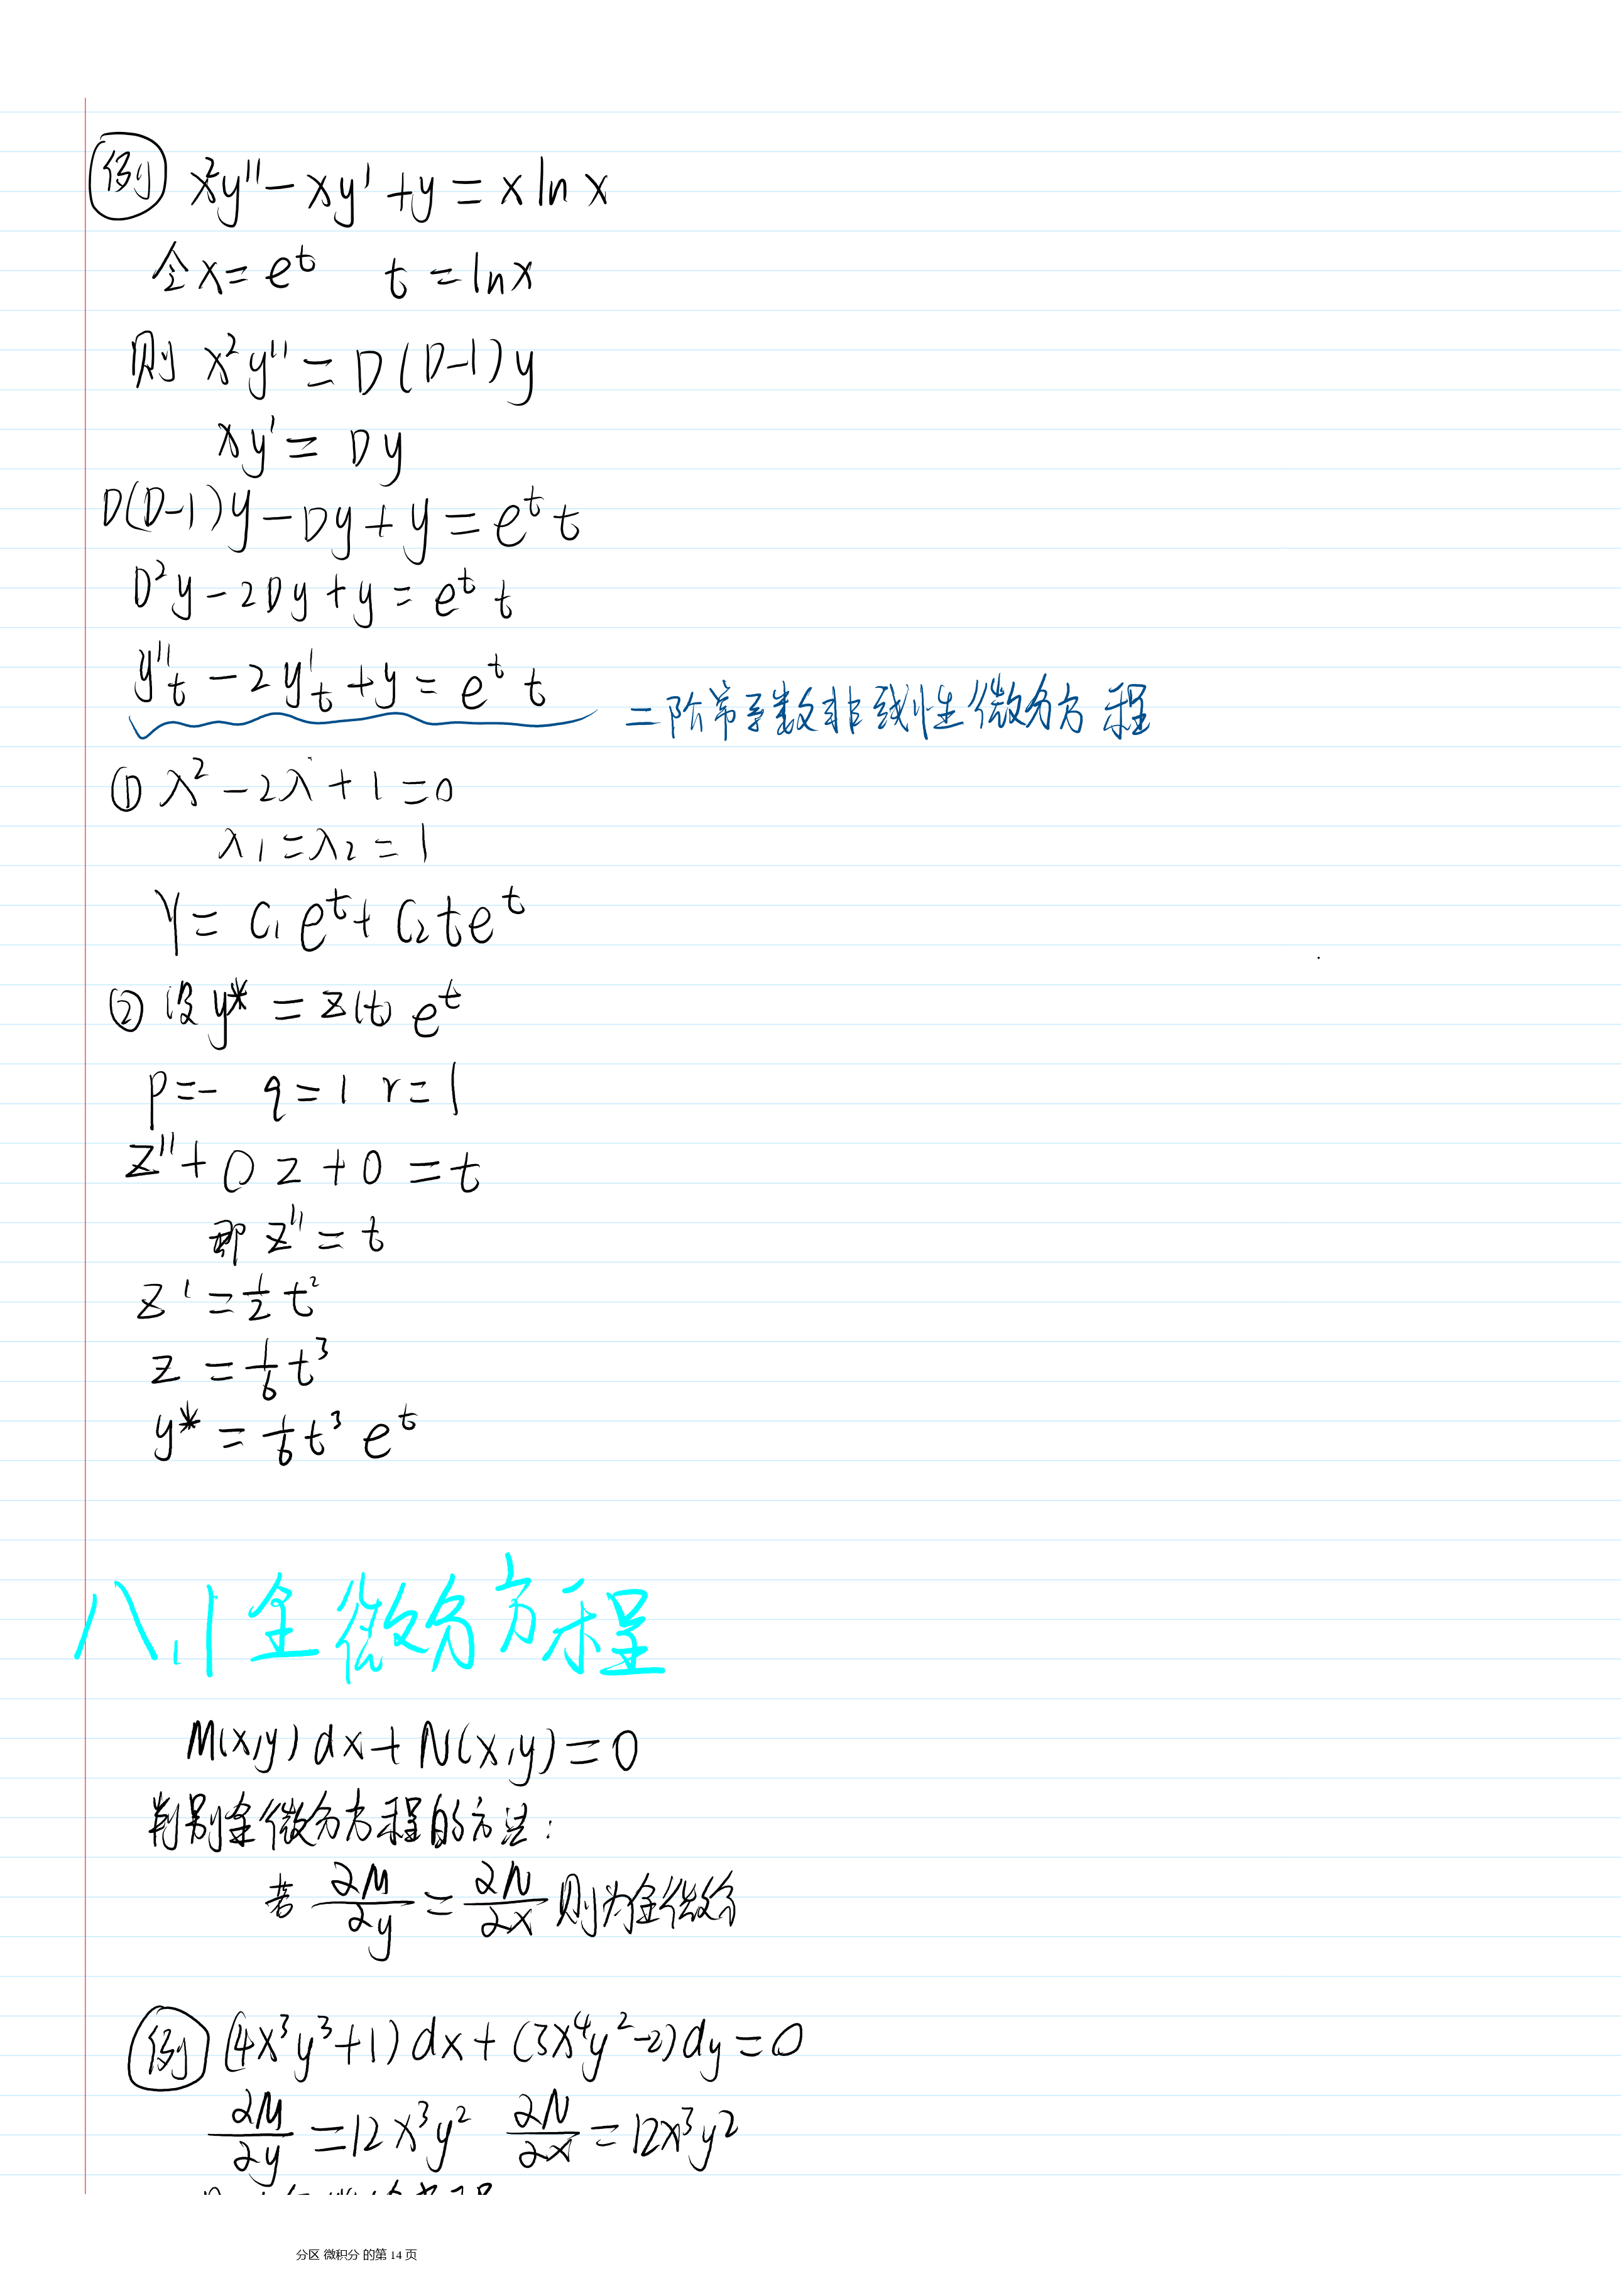 例 x²y''-xy'+y=xlnx
令x=eᵗ t=lnx
则 x²y''=D(D-1)y
xy'=Dy
D(D-1)y-Dy+y=eᵗt
D²y-2Dy+y=eᵗt
y''t-2y't+y=eᵗt 二阶常系数非线性微分方程
① λ²-2λ+1=0
λ₁=λ₂=1
Y=C₁eᵗ+C₂teᵗ
② 设y*=z(t)eᵗ
p=- q=1 r=1
z''+0z+0=t
即z''=t
z'=½t²
z=1/6t³
y*=1/6t³eᵗ
八.1全微分方程
M(x,y)dx+N(x,y)=0
判别全微分方程的方法:
若 ∂M/∂y=∂N/∂x 则为全微分
例 (4x³y³+1)dx+(3x⁴y²-2)dy=0
∂M/∂y=12x³y² ∂N/∂x=12x³y²
分区 微积分 的第 14 页